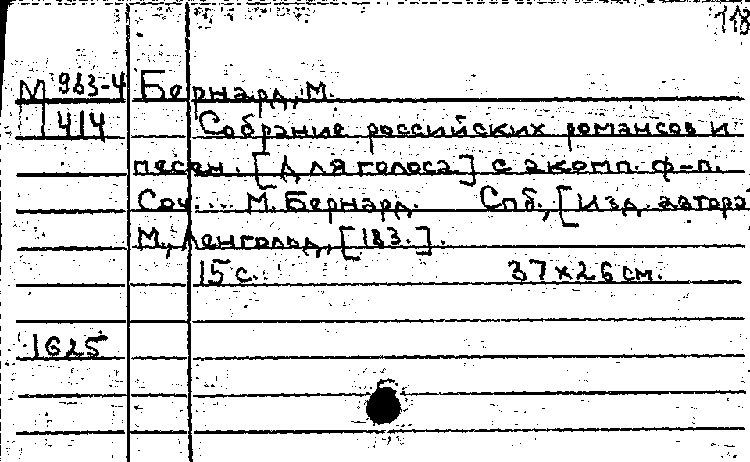 118
М 963-4 Бернард, М.
414 Собрание российских романсов и
песен. [Для голоса] с акомп. ф-п.
Соч.... М. Бернард. Спб., [Изд. автора
М., Ленгольд, [183.].
15 с. 37×26 см.
1625